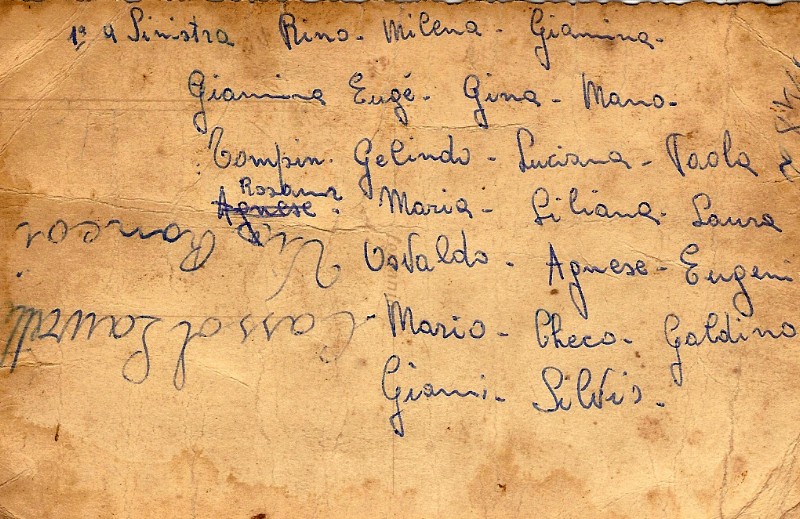 1º a Sinistra Rino - Milena - Giannina -
Giannina Eugé - Gina - Mano -
Compin - Gelindo - Luciana - Paola
Rosanna
Agnese - Maria - Liliana - Laura
Osvaldo - Agnese - Eugeni
- Mario - Checo - Galdino
Gianni - Silvio -
Via Roncoi
Cassol